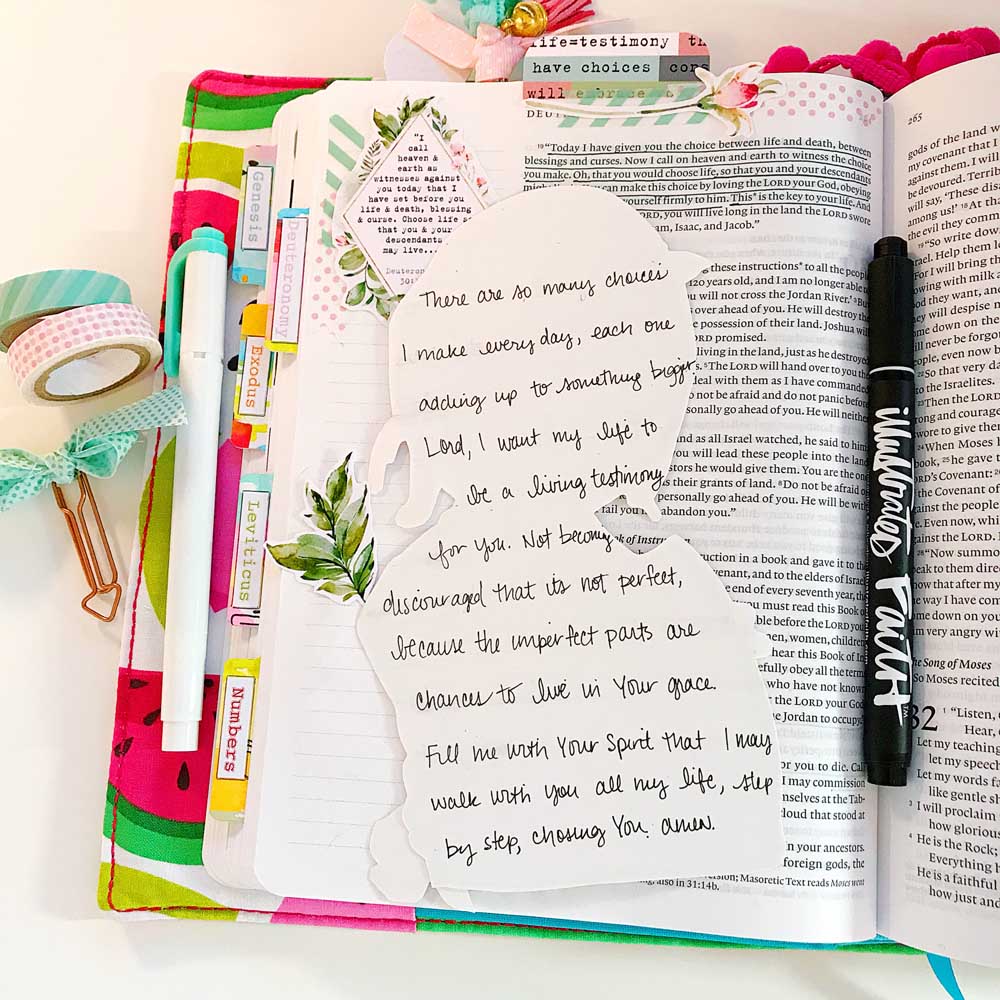 life=testimony th
have choices cons
will embrace
DEUT
265
"I
call
heaven &
earth as
witnesses against
you today that I
have set before you
life & death, blessing
& curse. Choose life so
that you & your
descendants
may live...
Deuteron
30:
Genesis
Deuteronomy
Exodus
Leviticus
Numbers
19 "Today I have given you the choice between life and death, between
blessings and curses. Now I call on heaven and earth to witness the choice
you make. Oh, that you would choose life, so that you and your descendants
can make this choice by loving the LORD your God, obeying
yourself firmly to him. This* is the key to your life. And
LORD, you will live long in the land the LORD swore
am, Isaac, and Jacob."
There are so many choices
I make every day, each one
adding up to something bigger
Lord, I want my life to
be a living testimony
for you. Not becoming
discouraged that its not perfect,
because the imperfect parts are
chances to live in Your grace.
Fill me with Your Spirit that I may
walk with you all my life, step
by step, chosing You. amen.
g these instructions* to all the people
120 years old, and I am no longer able
u will not cross the Jordan River.' But
over ahead of you. He will destroy the
possession of their land. Joshua will
RD promised.
living in the land, just as he destroyed
s. 5 The LORD will hand over to you the
deal with them as I have commanded
o not be afraid and do not panic before
sonally go ahead of you. He will neither
and as all Israel watched, he said to him
you will lead these people into the land
stors he would give them. You are the one
s their grants of land. 8 Do not be afraid or
personally go ahead of you. He will be with
fail you abandon you."
ok of Instruction
struction in a book and gave it to the
venant, and to the elders of Israel
end of every seventh year, the
you must read this Book of
men, women, children
hear this Book of In
efully obey all the terms
who have not known
the LORD your God
e Jordan to occupy
or you to die. Call
I may commission
mselves at the Tab-
cloud that stood at
n your ancestors.
foreign gods, the
version; Masoretic Text reads Moses went
also in 31:14b.
illustrated Faith
TM
gods of the land w
my covenant that I
against them. I will
be devoured. Terrib
will say, 'These dis
among us!' 18 At tha
the evil they commi
19 "So write down
ael. Help them le
For I will bring th
The Song of Moses
So Moses recited
32
1 "Listen,
Hear,
Let my teaching
let my speech
Let my words fa
like gentle sh
3 I will proclaim
how glorious
4 He is the Rock;
Everything h
He is a faithful
how just and